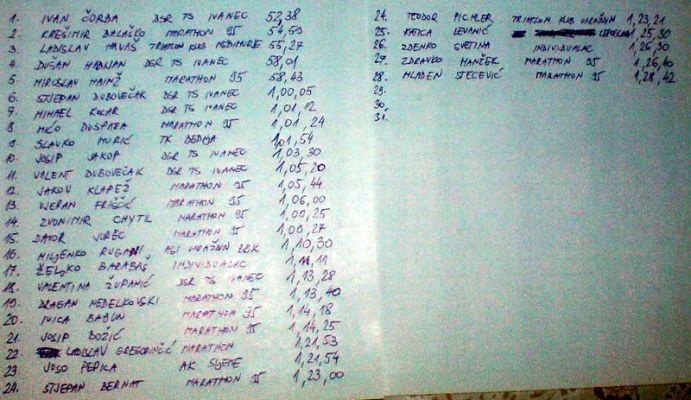 1. IVAN ČORBA DSR TS IVANEC 52,38
2. KREŠIMIR BALAŠKO MARATHON 95 54,50
3. LADISLAV HAVAŠ TRIATLON KLUB MEĐIMURJE 55,27
4. DUŠAN HABIJAN DSR TS IVANEC 58,01
5. MIROSLAV MARATHON 95 58,43
6. STJEPAN DUBOVEČAK DSR TS IVANEC 1,00,05
7. MIHAEL KOLAR DSR TS IVANEC 1,01,12
8. MIĆO DUSPARA MARATHON 95 1,01,24
9. SLAVKO MURIĆ TK 1,01,54
10. JOSIP JAKOP DSR TS IVANEC 1,03,30
11. VALENT DUBOVEČAK DSR TS IVANEC 1,05,20
12. JAKOV KLAPEŽ MARATHON 95 1,05,44
13. VJERAN FRIŠČIĆ MARATHON 95 1,06,00
14. ZVONIMIR CHYTIL MARATHON 95 1,00,25
15. DAVOR JUREC MARATHON 95 1,00,27
16. MILJENKO RUGANI VARAŽDIN 1,10,30
17. ŽELJKO BARABAŠ INDIVIDUALAC 1,11,11
18. VALENTINA ŽUPANIĆ DSR TS IVANEC 1,13,28
19. DRAGAN NEDELKOVSKI MARATHON 95 1,13,40
20. IVICA MARATHON 95 1,14,18
21. JOSIP BOŽIĆ MARATHON 95 1,14,25
22. LADISLAV GREGORINČIĆ MARATHON 1,21,53
23. JOSO PERICA AK SLJEME 1,21,54
24. STJEPAN BERNAT MARATHON 95 1,23,00
24. TEODOR PICHLER TRIATLON KLUB VARAŽDIN 1,23,21
25. KATICA LEVANIĆ 1,25,30
26. ZDENKO SVETINA INDIVIDUALAC 1,26,30
27. ZDRAVKO HANŽEK MARATHON 95 1,26,40
28. MLADEN STEČEVIĆ MARATHON 95 1,28,42
29.
30.
31.